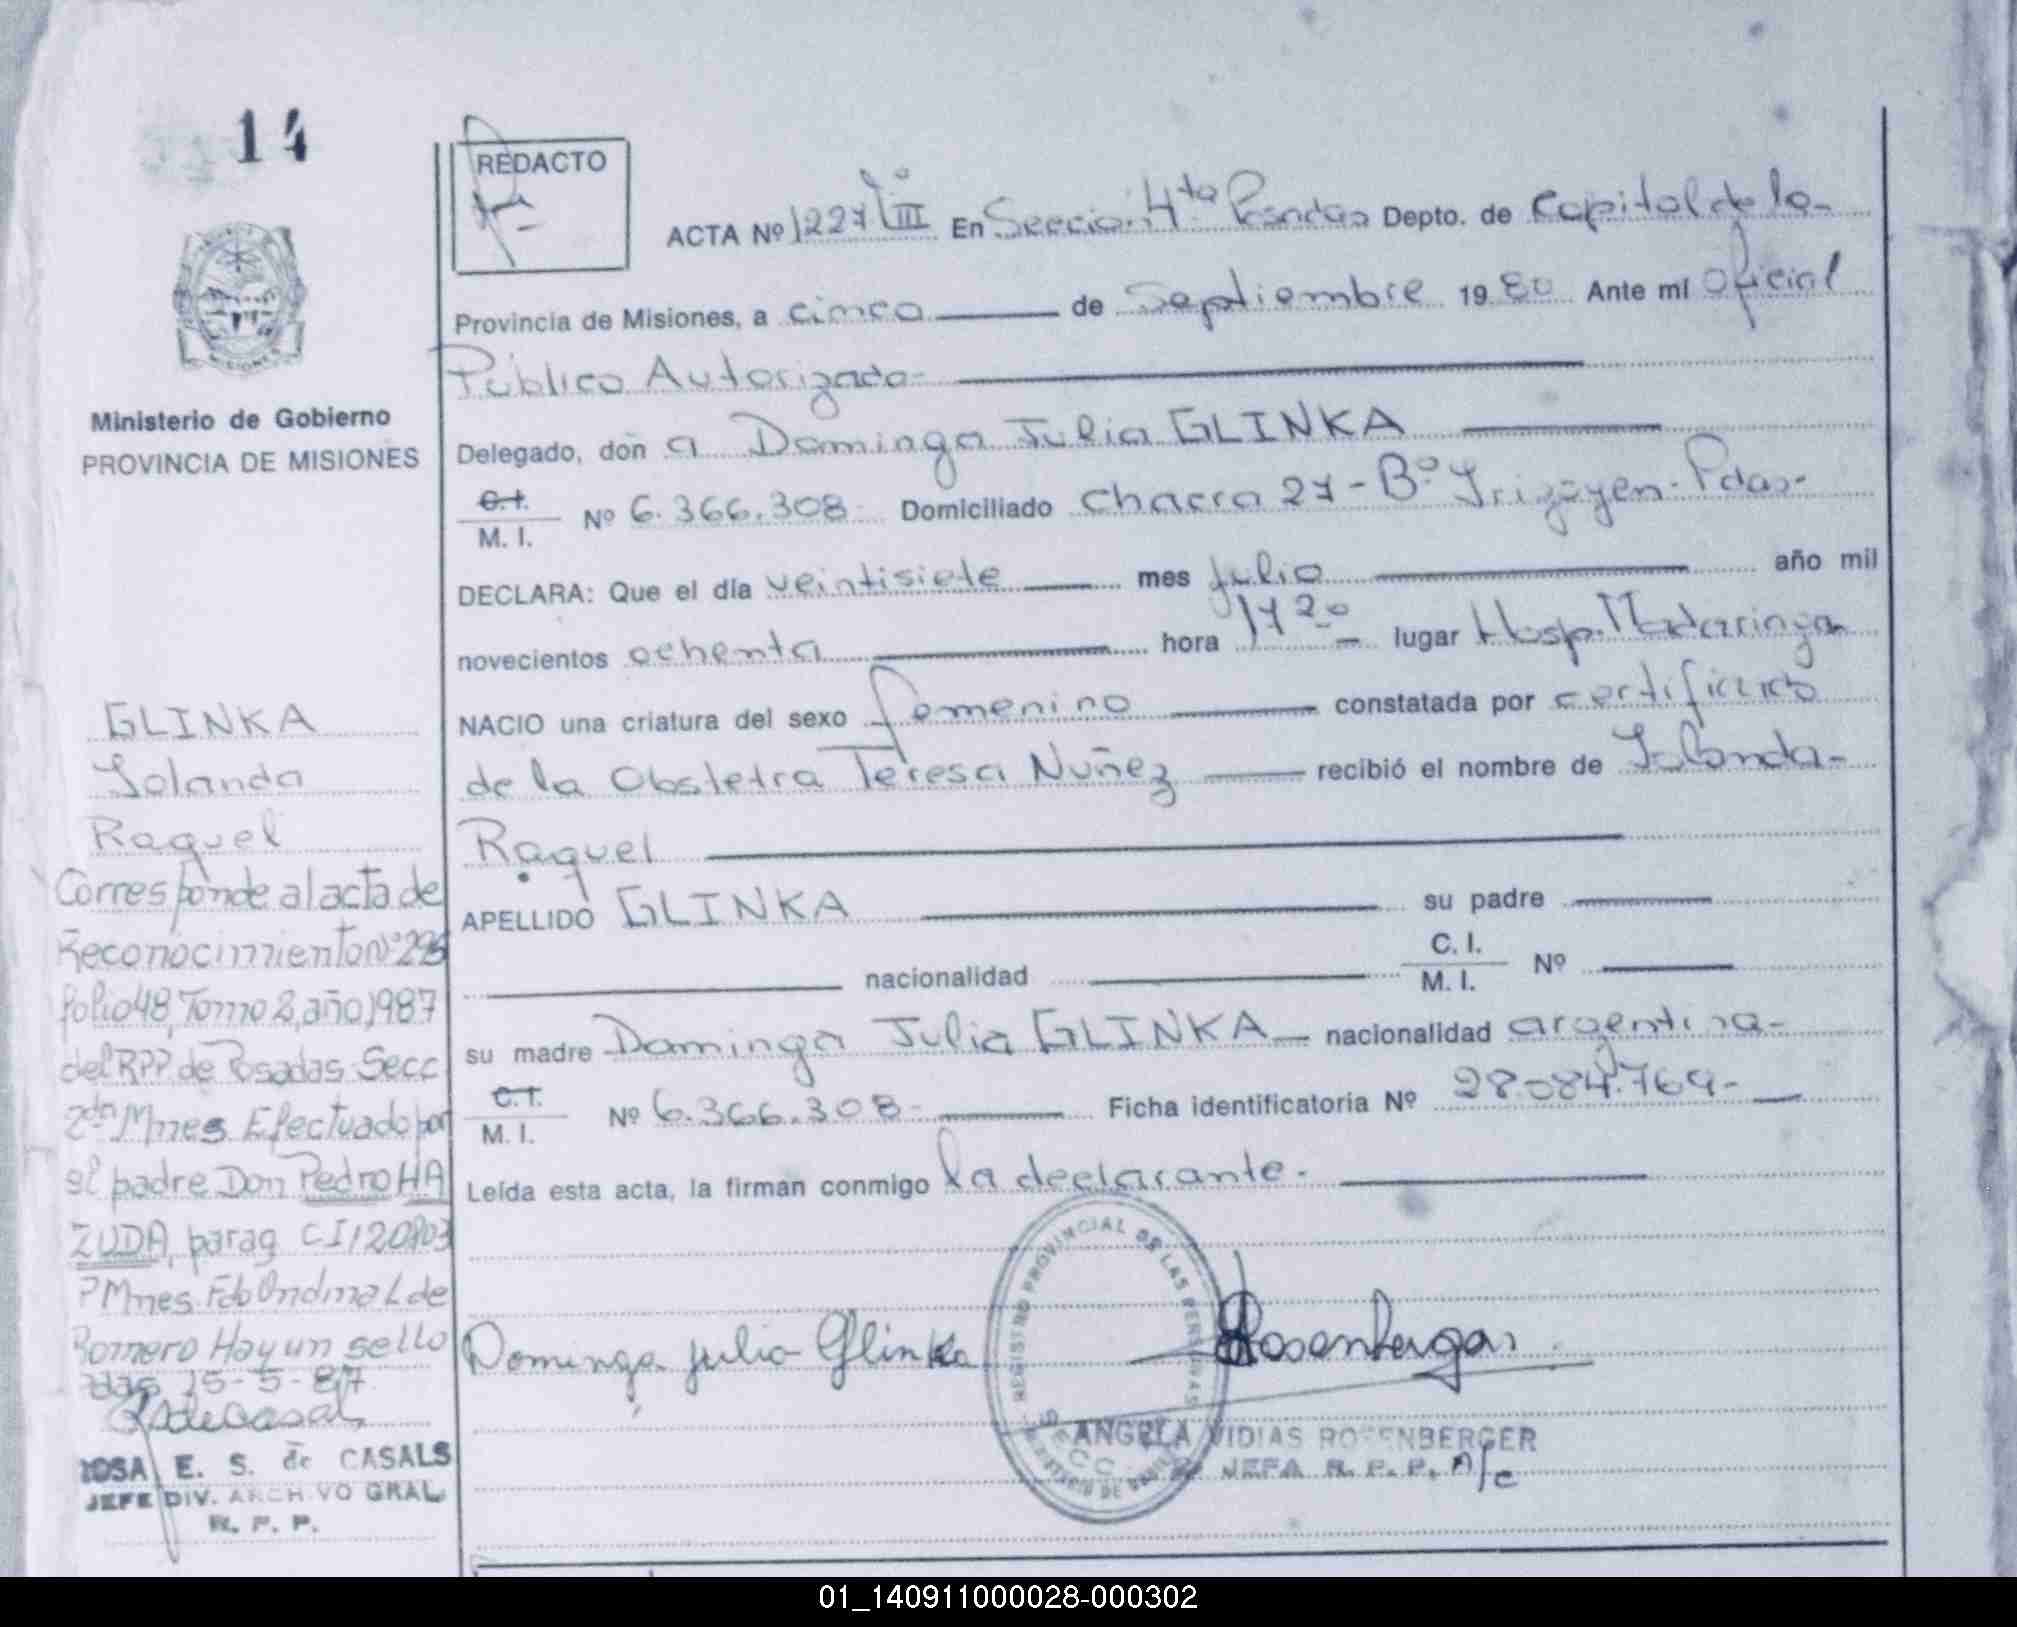 14
REDACTO
ACTA Nº 1227 III En Secció. 4ta Posadas Depto. de Capital de la-
Provincia de Misiones, a cinco de Septiembre 1980 Ante mí Oficial
Público Autorizado-
Delegado, don a Dominga Julia GLINKA
C.I.
M. I. Nº 6.366.308- Domiciliado Chacra 27-Bº Yrigoyen-Pdas-
DECLARA: Que el día veintisiete mes julio año mil
novecientos ochenta hora 17 20 lugar Hosp. Madariaga
NACIO una criatura del sexo femenino constatada por certificado
de la Obstetra Teresa Nuñez recibió el nombre de Iolanda-
Raquel
APELLIDO GLINKA su padre
nacionalidad C. I.
M. I. Nº
su madre Dominga Julia GLINKA nacionalidad argentina-
C.I.
M. I. Nº 6.366.308- Ficha identificatoria Nº 28.084.769-
Leída esta acta, la firman conmigo la declarante.
Dominga julia Glinka
REGISTRO PROVINCIAL DE LAS PERSONAS
SECC.
ANGELA VIDIAS ROSENBERGER
JEFA R. P. P. A/c
MISIONES
Ministerio de Gobierno
PROVINCIA DE MISIONES
GLINKA
Iolanda
Raquel
Corresponde al acta de
Reconocimiento Nº
folio 48, Tomo 2, año 1987
del RPP de Posadas Secc
2da Mnes Efectuado por
el padre Don Pedro HA
ZUDA, parag CI
Mnes Fdo Ondina L de
Romero Hay un sello
Pdas 15-5-87
ROSA E. S. de CASALS
JEFE DIV. ARCHIVO GRAL
R. P. P.
01_140911000028-000302